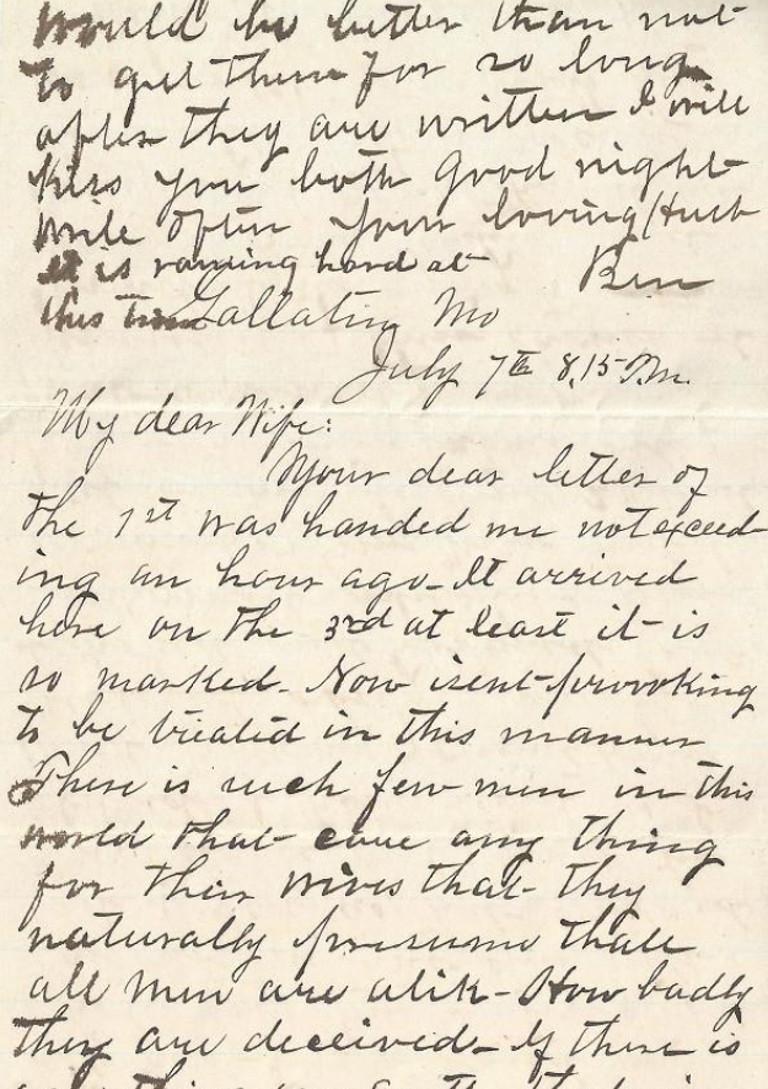 would be better than not
to get them for so long
after they are written I will
kiss you both Good night
write often your loving Husb
it is raining hard at Ben
this time Gallatin Mo
July 7th 8,15 P.m.
My dear Wife:
Your dear letter of
the 1st was handed me not exceed-
ing an hour ago - It arrived
here on the 3rd at least it is
so marked - Now isent provoking
to be treated in this manner
There is such few men in this
world that care any thing
for their wives that they
naturally presume that
all men are alik - How badly
they are deceived - If there is